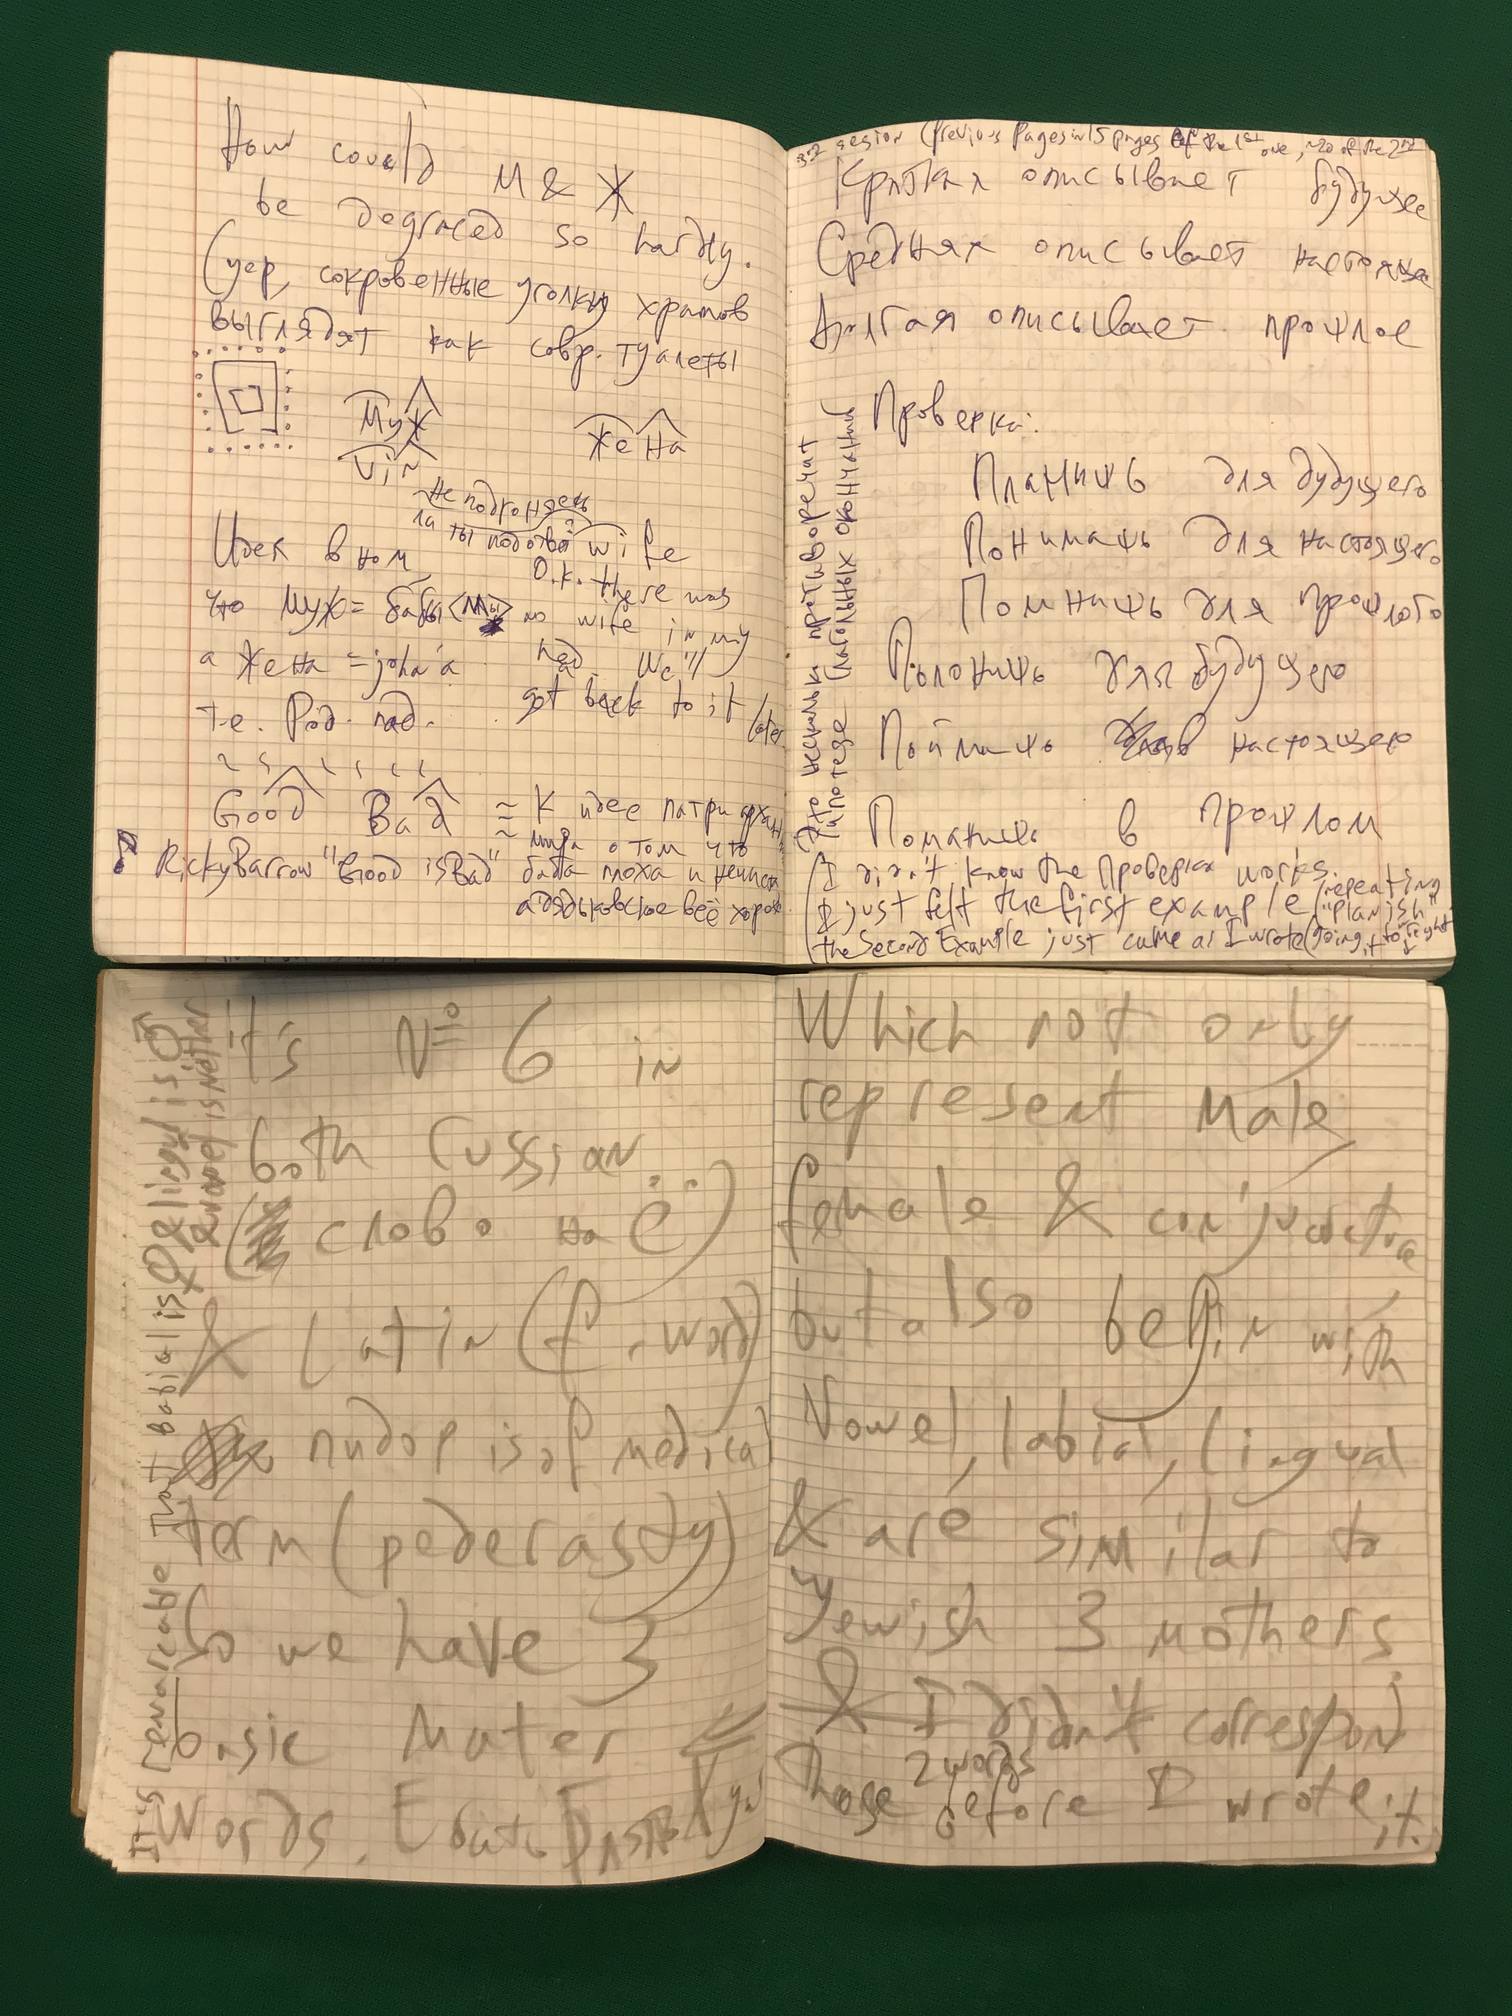 How could M & Ж
be degraded so hardly.
(yep, сокровенные уголки храмов
выглядят как совр. туалеты
Муж Жена
Vir
не подгоняем
ты подогнал
wife
Идея в том
O.K. there was
что Муж = бабы <Мы>
no wife in my
а жена = john'a
над. We'll
т.е. Род. пад.
got back to it later
Good Bad ≈ К идее патриархальн
мира о том что
Ricky Barrow "Good is Bad" баба плоха и нечиста
а дядьковское всё хорошо
3rd session (Previous Pages in 15 pages of the 1st one, of the 2nd
Краткая описывает будущее
Средняя описывает настояще
Долгая описывает прошлое
Проверка:
Планишь для будущего
Понимашь для настоящего
Помнишь для прошлого
Положишь для будущего
Поймашь настоящего
Поманишь в прошлом
Это несколько противоречит
гипотезе глагольных окончаний
(I didn't know the проверка works.
I just felt the first example (repeating "planish"
the Second Example just came as I wrote (going, it to right
it's № 6 in
both russian
( слово на ё)
& Latin (f-word)
пидор is of medical
term (pederasty)
So we have 3
basic Mater
words. Ebat,
It's remarkable that Babial is ♀ & lingual is ♂
& vowel is neither
Which not only
represent Male,
female & conjunction
but also begin with
Vowel, labial, lingual
& are similar to
Jewish 3 mothers
& I didn't correspond
those 2 words before I wrote it.